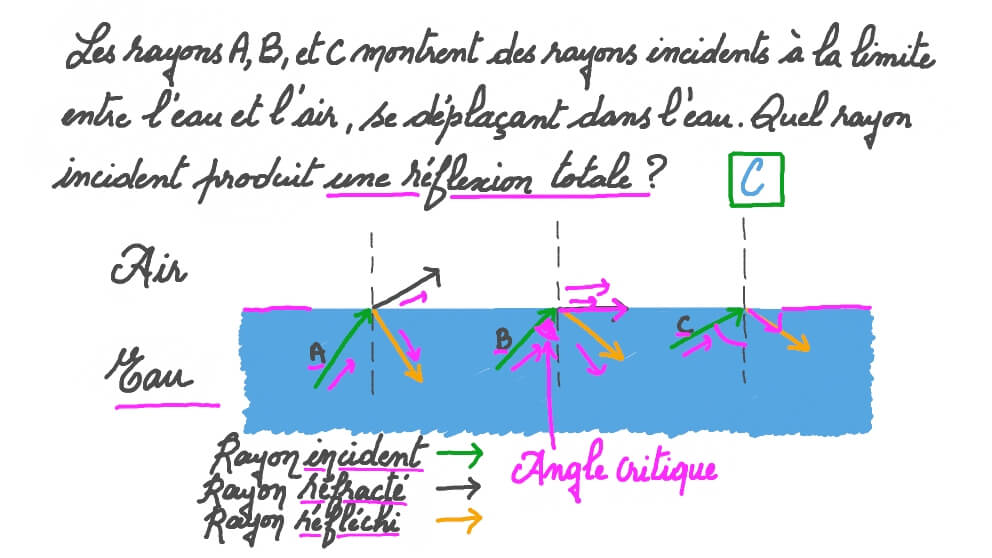 Les rayons A, B, et C montrent des rayons incidents à la limite
entre l'eau et l'air, se déplaçant dans l'eau. Quel rayon
incident produit une réflexion totale ? C
Air
A
B
C
Eau
Rayon incident
Angle critique
Rayon réfracté
Rayon réfléchi